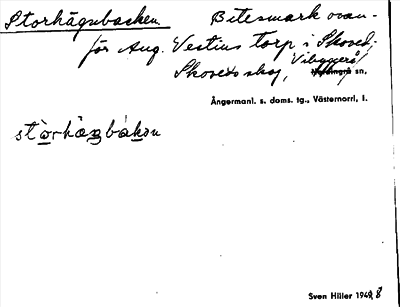 Storhägnbacken
Betesmark ovan-
för Aug. Vestins torp i Skoved,
Skoveds skog, Vibyggerå
sn.
Ångermanl. s. doms. tg., Västernorrl, l.
Sven Hiller 1948